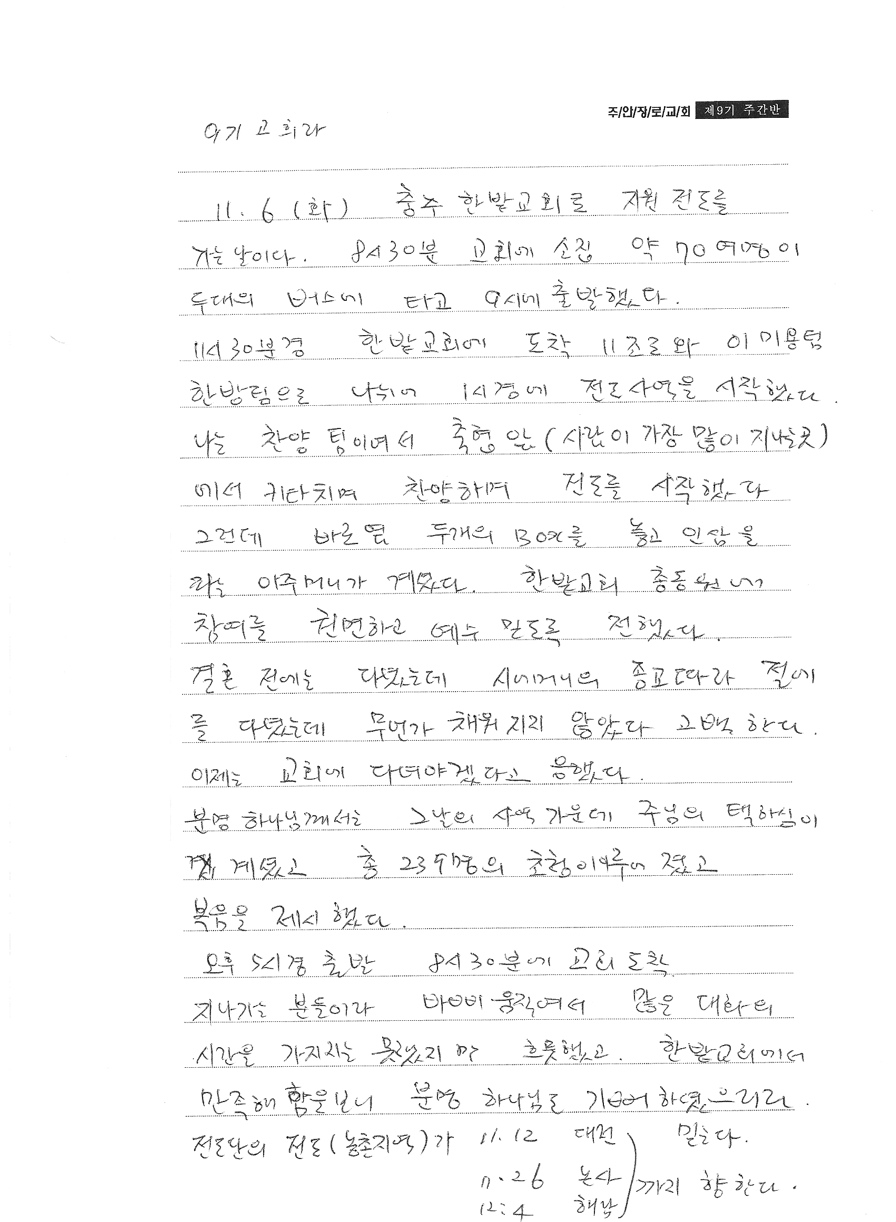 주/안/장/로/교/회 제9기 주간반
9기 고희라
11. 6 (화) 충주 한밭교회로 지원 전도를
가는 날이다. 8시30분 교회에 소집 약 70여명이
두대의 버스에 타고 9시에 출발했다.
11시 30분경 한밭교회에 도착 11조로와 이미용팀
한방팀으로 나뉘어 1시경에 전도사역을 시작했다.
나는 찬양 팀이여서 축협 앞 (사람이 가장 많이 지나는곳)
에서 키타치며 찬양하며 전도를 시작했다
그런데 바로옆 두개의 BOX를 놓고 인삼을
파는 아주머니가 계셨다. 한밭교회 총동원
참여를 권면하고 예수 믿도록 전했다.
결혼 전에는 다녔는데 시어머니의 종교따라 절에
를 다녔는데 무언가 채워지지 않았다 고백 한다.
이제는 교회에 다녀야겠다고 응했다.
분명 하나님께서는 그날의 사역 가운데 주님의 택하심이
계셨고 총 239명의 초청이 이루어 졌고
복음을 제시 했다.
오후 5시경 출발 8시 30분에 교회 도착
지나가는 분들이라 바삐 움직여서 많은 대화의
시간을 가지지는 못했지만 흐뭇했고. 한밭교회에서
만족해 함을보니 분명 하나님도 기뻐하셨으리라.
전도단의 전도 (농촌지역)가 11. 12 대전 믿는다.
11. 26 논산 까지 향한다.
12. 4 해남